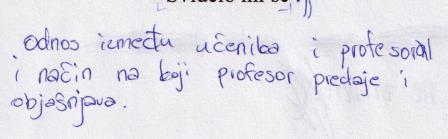 odnos između učenika i profesora
i način na koji profesor predaje i
objašnjava.